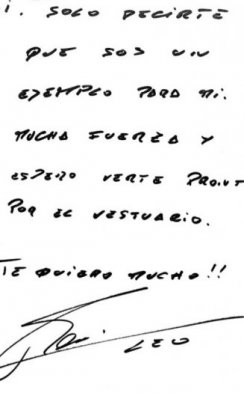 I. SOLO DECIRTE
QUE SOS UN
EJEMPLO PARA MI.
MUCHA FUERZA Y
ESPERO VERTE PRONT
POR EL VESTUARIO.
TE QUIERO MUCHO!!
LEO